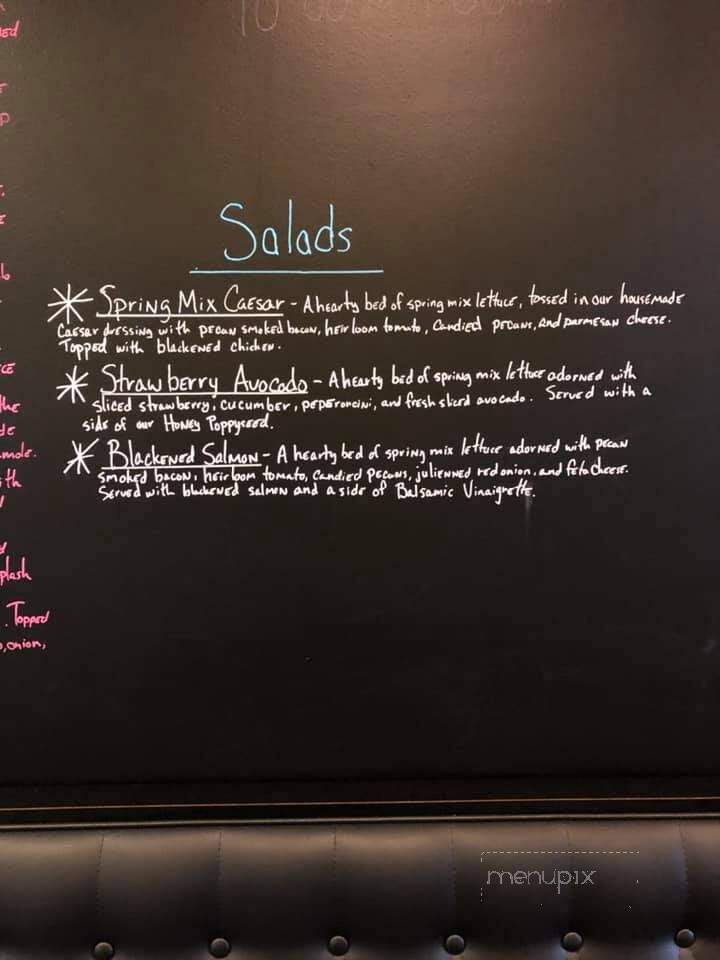 Salads
SPRING MIX CAESAR - A hearty bed of spring mix lettuce, tossed in our housemade
Caesar dressing with pecan smoked bacon, heirloom tomato, candied pecans, and parmesan cheese.
Topped with blackened chicken.
Strawberry Avocado - A hearty bed of spring mix lettuce adorned with
sliced strawberry, cucumber, peperoncini, and fresh sliced avocado. Served with a
side of our Honey Poppyseed.
Blackened Salmon - A hearty bed of spring mix lettuce adorned with pecan
smoked bacon, heirloom tomato, candied pecans, julienned red onion, and feta cheese.
Served with blackened salmon and a side of Balsamic Vinaigrette.
plash
. Topped
, onion,
menupix